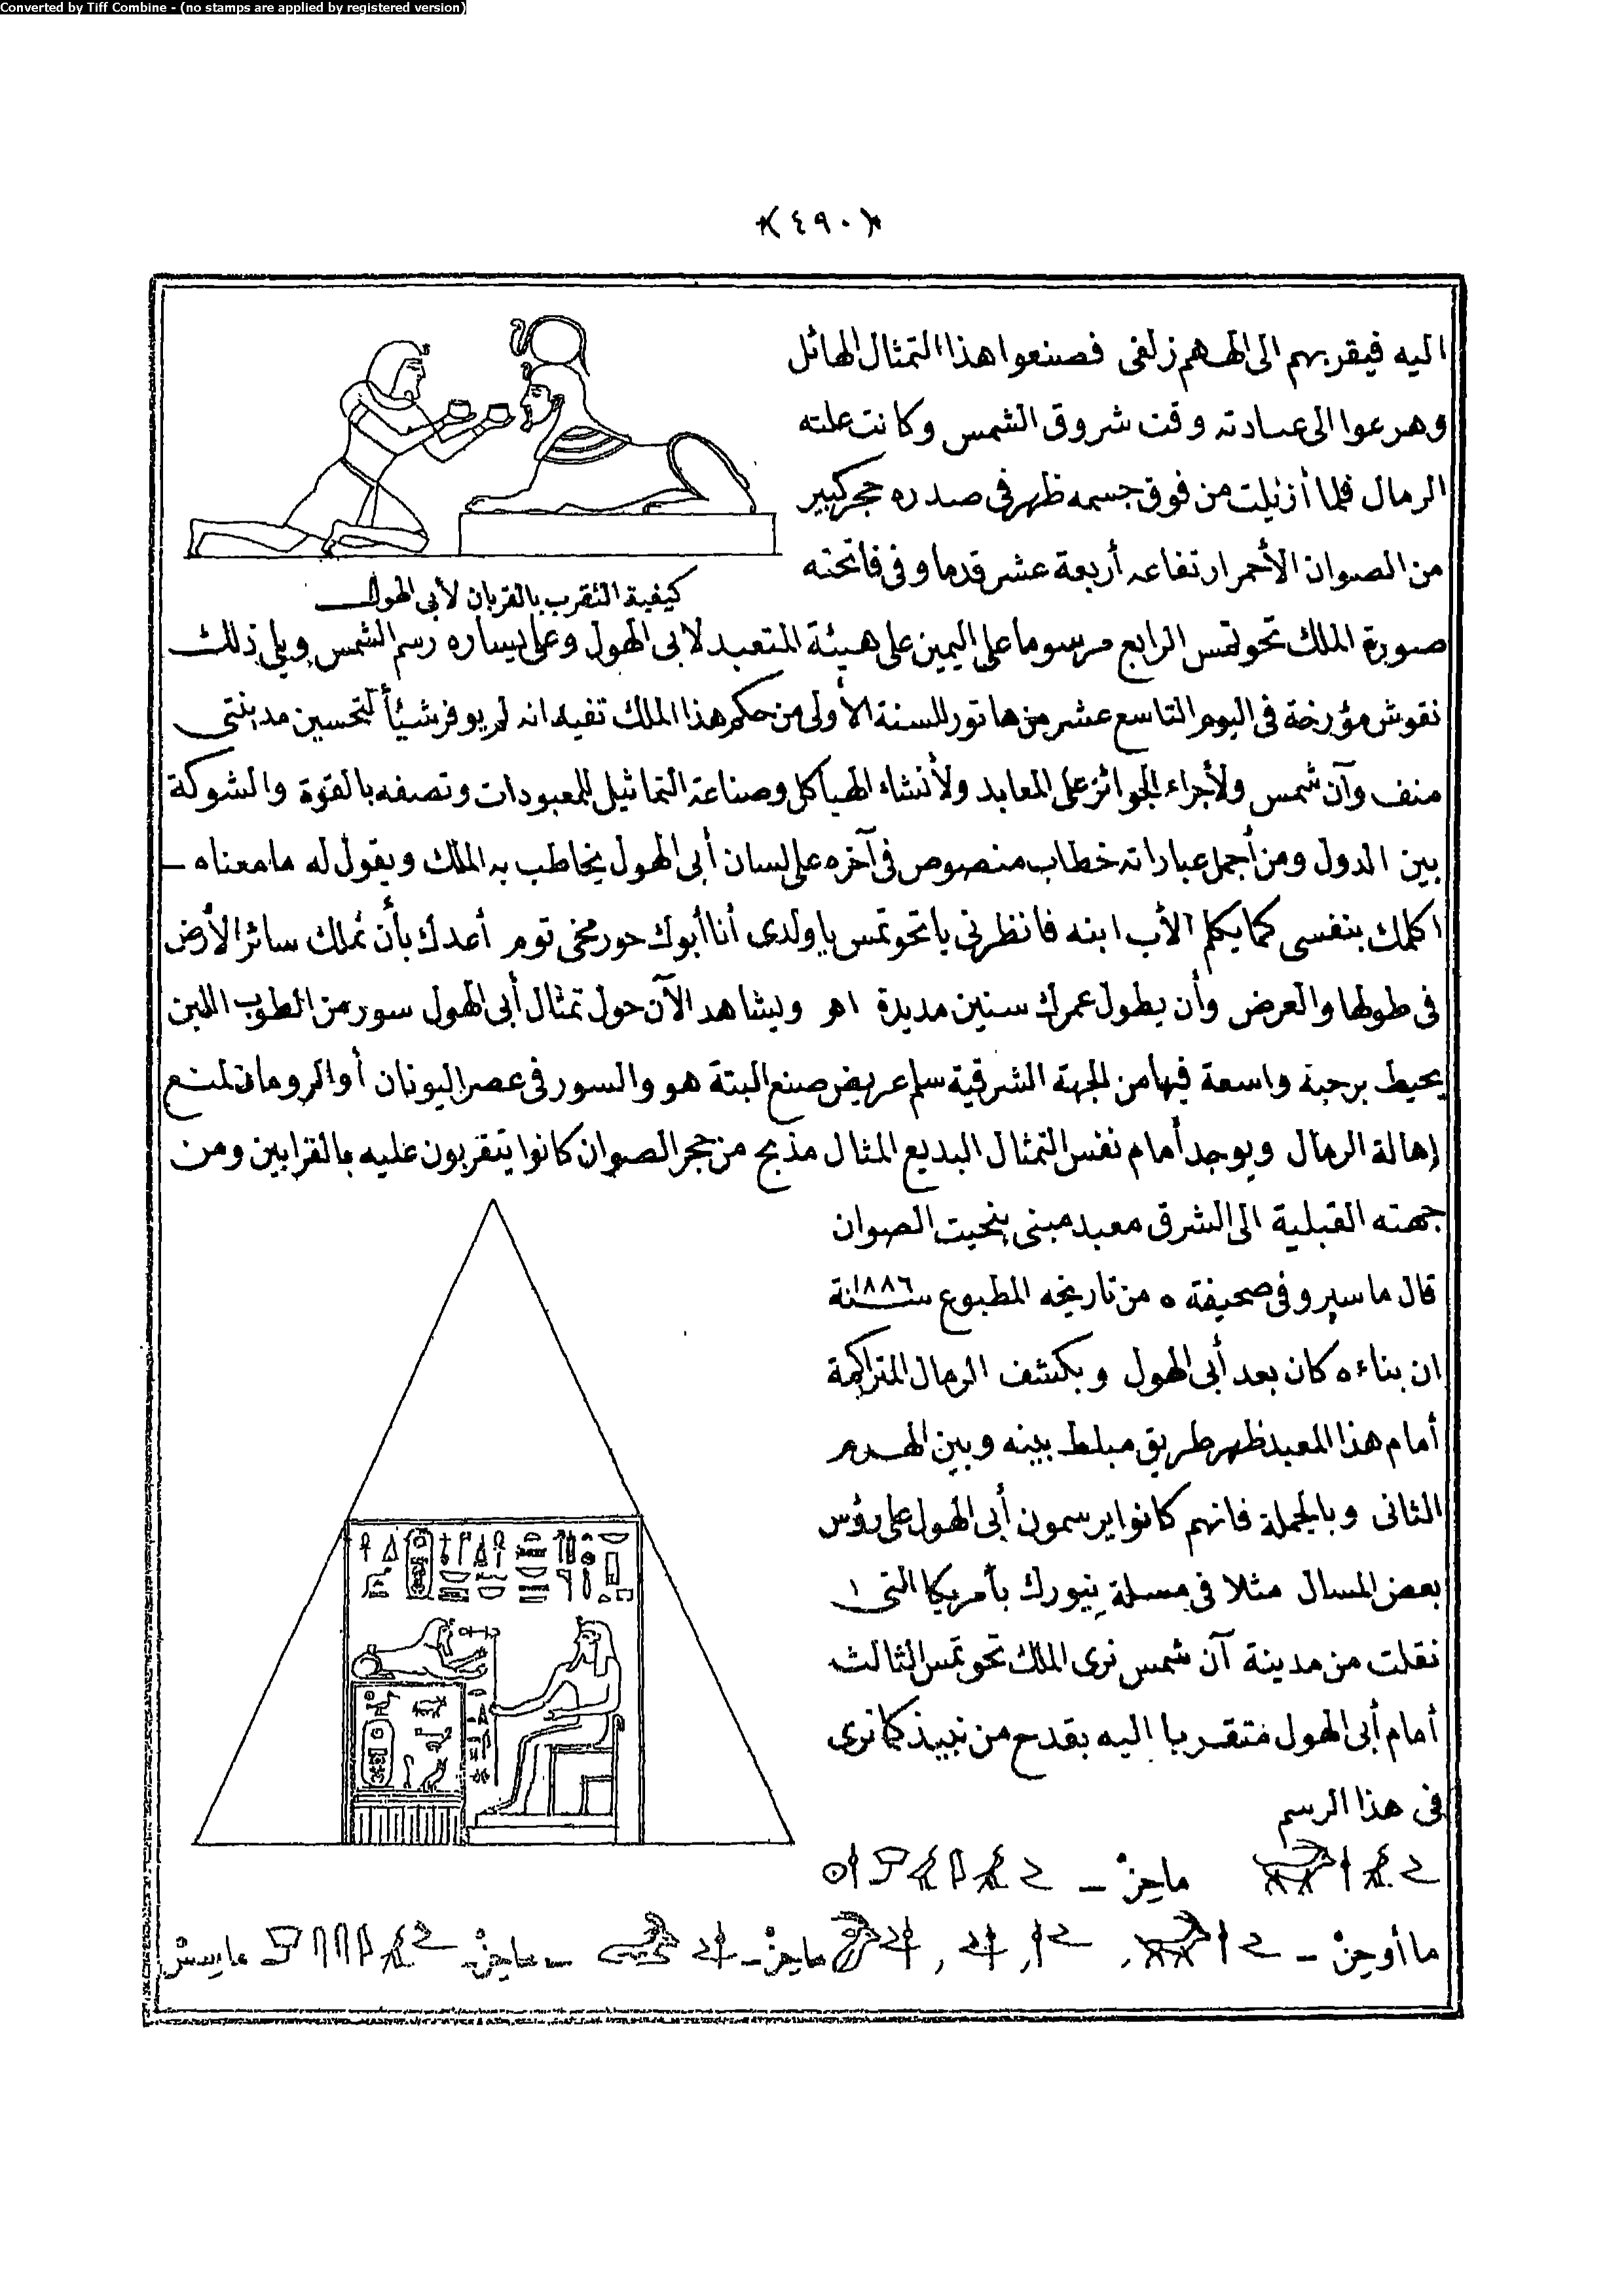 Converted by Tiff Combine - (no stamps are applied by registered version)
﴿٤٩٠﴾
اليه فيقربهم الى الههم زلفى فصنعوا هذا التمثال الهائل
وهرعوا الى عبادته وقت شروق الشمس وكانت علته
الرمال فلما أزيلت من فوق جسمه ظهر فى صدره حجر كبير
من الصوان الأحمر ارتفاعه أربعة عشر قدما وفى فاتحته
كيفية التقرب بالقربان لأبى الهول
صورة الملك تحوتمس الرابع مرسوما على اليمين على هيئة المتعبد لابى الهول وعلى يساره رسم الشمس ويلى ذلك
نقوش مؤرخة فى اليوم التاسع عشر من هاتور للسنة الأولى من حكم هذا الملك تفيد انه لم يوفر شيئا لتحسين مدينتى
منف وآن شمس ولأجراء الجوائز على المعابد ولأنشاء الهياكل وصناعة التماثيل للمعبودات وتصفه بالقوة والشوكة
بين الدول ومن أجمل عباراته خطاب منصوص فى آخره على لسان أبى الهول يخاطب به الملك ويقول له ما معناه ـ
اكلمك بنفسى كما يكلم الأب ابنه فانظرنى يا تحوتمس يا ولدى أنا أبوك حورمخى توم أعدك بأن تملك سائر الأرض
فى طولها والعرض وأن يطول عمرك سنين مديدة اهـ ويشاهد الآن حول تمثال أبى الهول سور من الطوب اللبن
يحيط برحبة واسعة فيها من الجهة الشرقية سلم عريض صنع البتة هو والسور فى عصر اليونان أو الرومان لمنع
إهالة الرمال ويوجد أمام نفس التمثال البديع المثال مذبح من حجر الصوان كانوا يتقربون عليه بالقرابين ومن
جهته القبلية الى الشرق معبد مبنى بنحيت الصوان
قال ماسپرو فى صحيفة ٥ من تاريخه المطبوع سنة ١٨٨٦
ان بناءه كان بعد أبى الهول وبكشف الرمال المتراكمة
أمام هذا المعبد ظهر طريق مبلط بينه وبين الهرم
الثانى وبالجملة فانهم كانوا يرسمون أبى الهول على رؤس
بعض المسال مثلا فى مسلة نيورك بأمريكا التى ١
نقلت من مدينة آن شمس نرى الملك تحوتمس الثالث
أمام أبى الهول متقربا اليه بقدح من نبيذ كما نرى
فى هذا الرسم
ماحز ـ
ما أوحز ـ ماحز ـ ماحز ـ